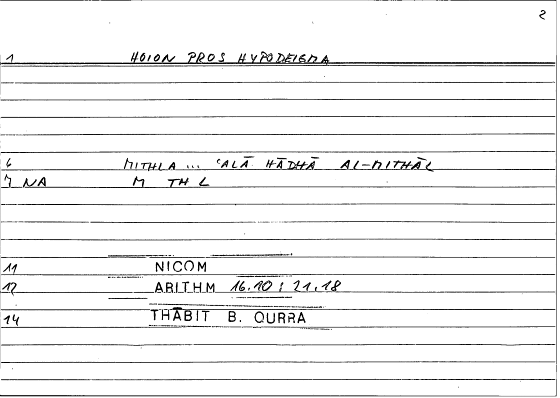 2
1 HOION PROS HYPODEIGMA
6 MITHLA ... ʿALĀ HĀDHĀ AL-MITHĀL
7 NA M TH L
11 NICOM
12 ARITHM 16.10 ; 21.18
14 THĀBIT B. QURRA